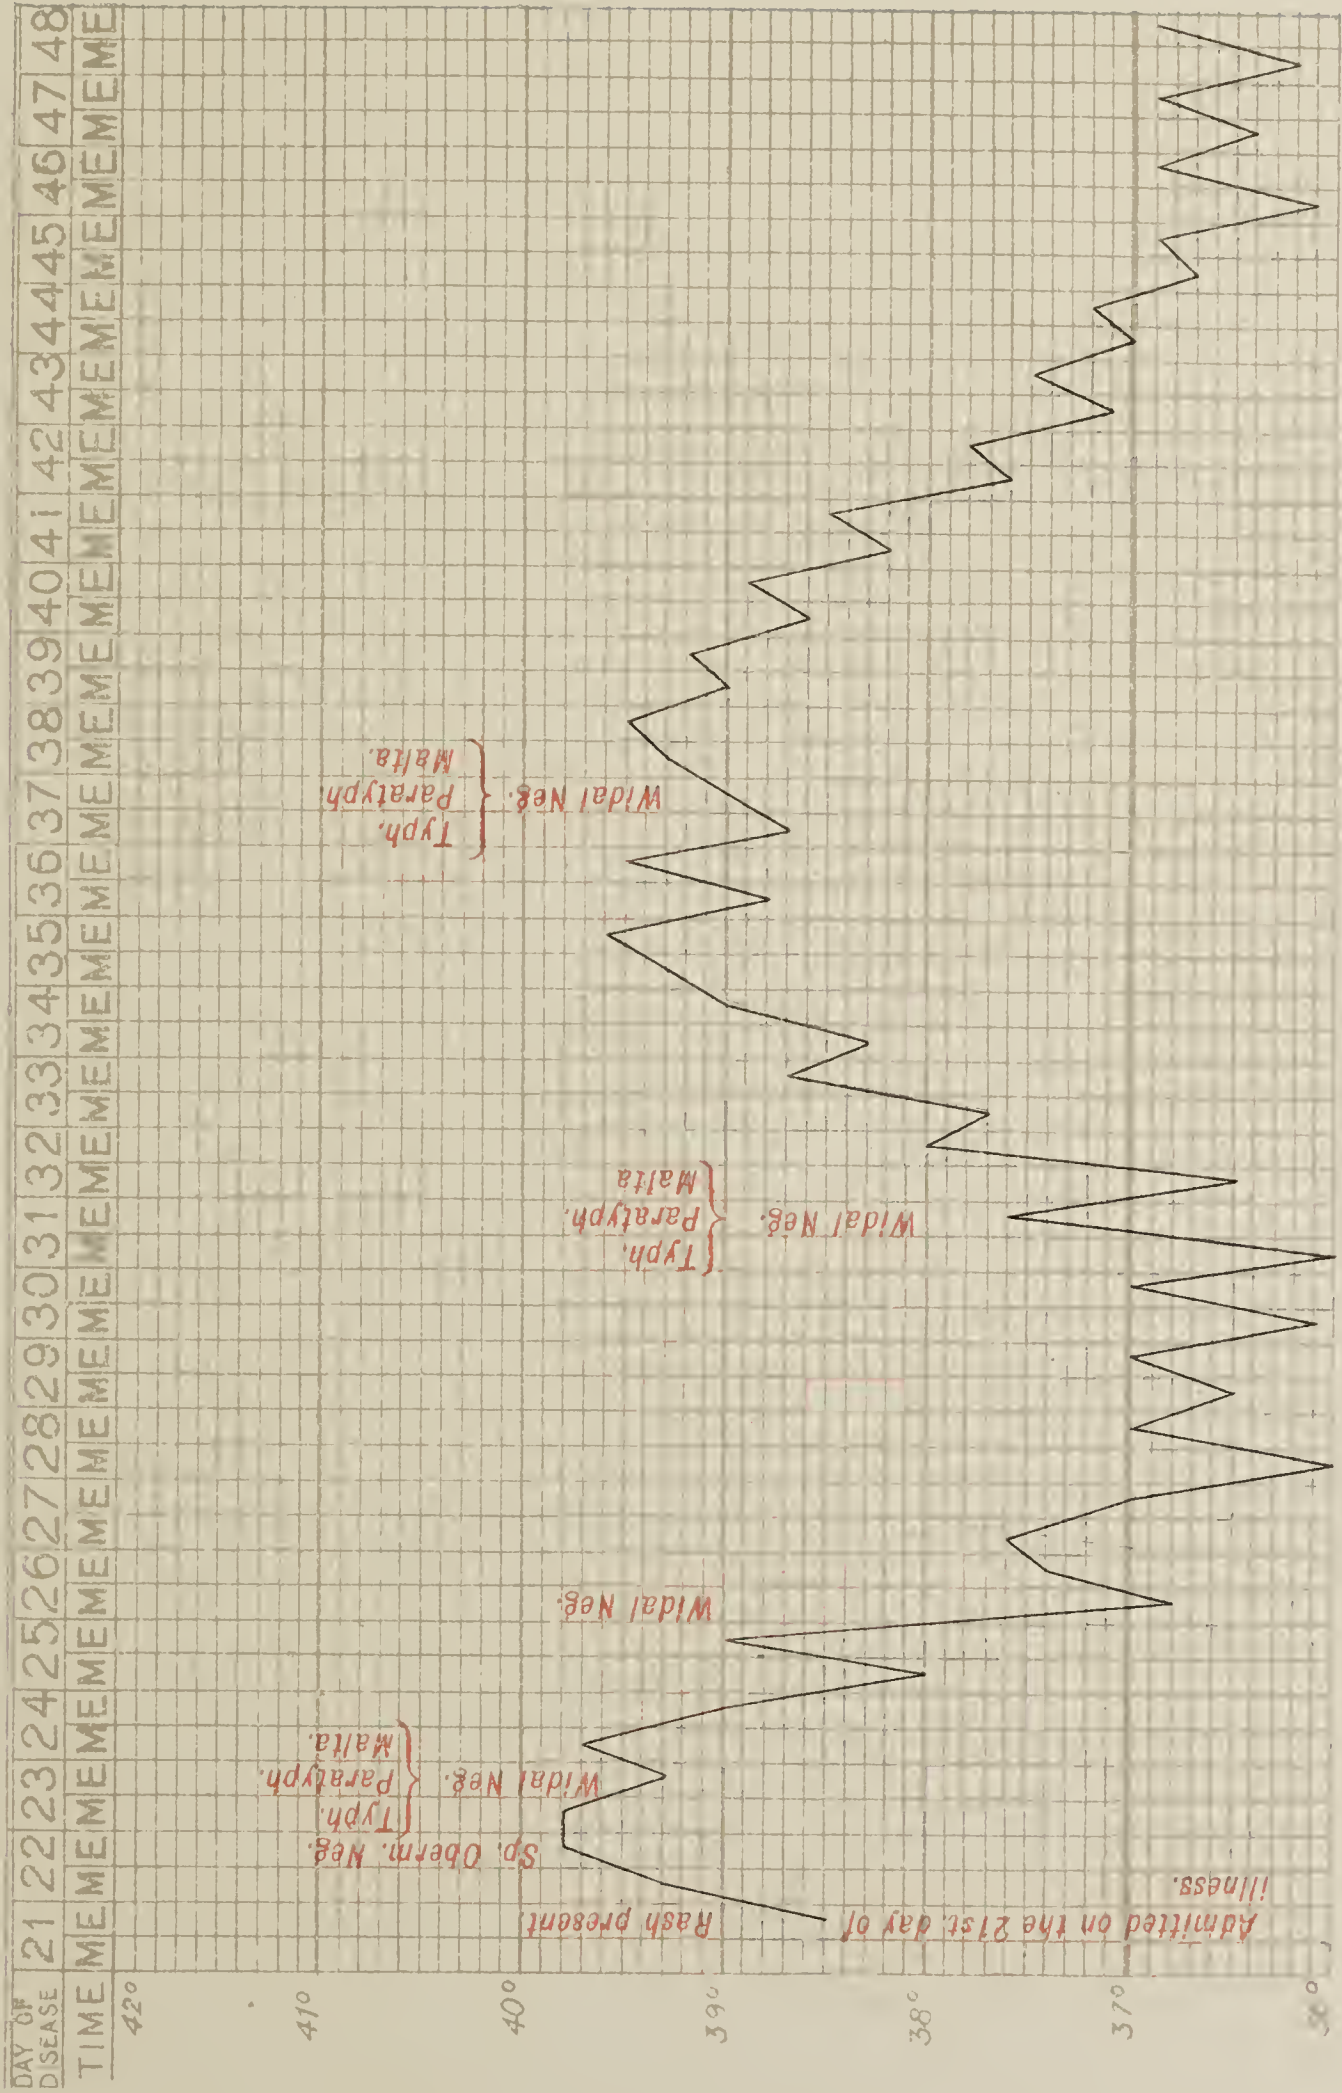 DAY OF DISEASE 21 22 23 24 25 26 27 28 29 30 31 32 33 34 35 36 37 38 39 40 41 42 43 44 45 46 47 48
TIME M E M E M E M E M E M E M E M E M E M E M E M E M E M E M E M E M E M E M E M E M E M E M E M E M E M E M E M E
42°
41°
40°
39°
38°
37°
36°
Admitted on the 21st day of
illness.
Rash present
Sp. Oberm. Neg.
Widal Neg.
Typh.
Paratyph.
Malta.
Widal Neg.
Widal Neg.
Typh.
Paratyph.
Malta
Widal Neg.
Typh.
Paratyph
Malta.